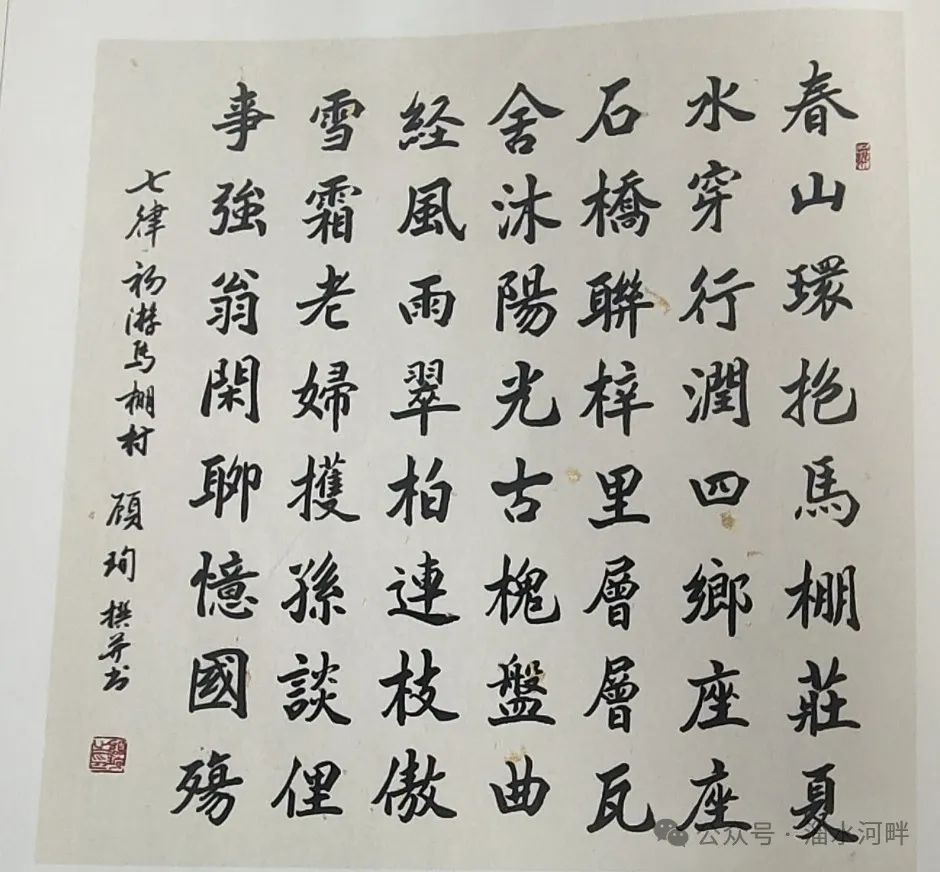 春山環抱馬棚莊夏
水穿行潤四鄉座座
石橋聯梓里層層瓦
舍沐陽光古槐盤曲
経風雨翠柏連枝傲
雪霜老婦擭孫談俚
事強翁閑聊憶國殤
七律 初游馬棚村 顾珣撰并书
公众号·淄水河畔